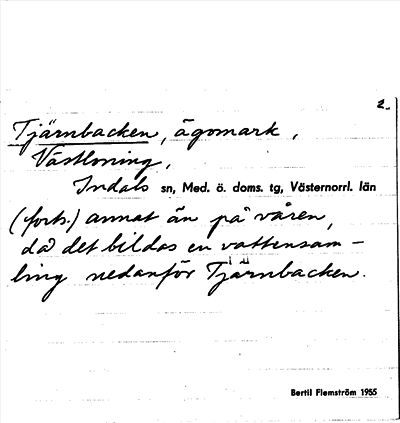 2.
Tjärnbacken, ägomark,
Västloning,
Indals sn, Med. ö. doms. tg, Västernorrl. län
(forts.) annat än på våren,
då det bildas en vattensam-
ling nedanför Tjärnbacken.
Bertil Flemström 1955